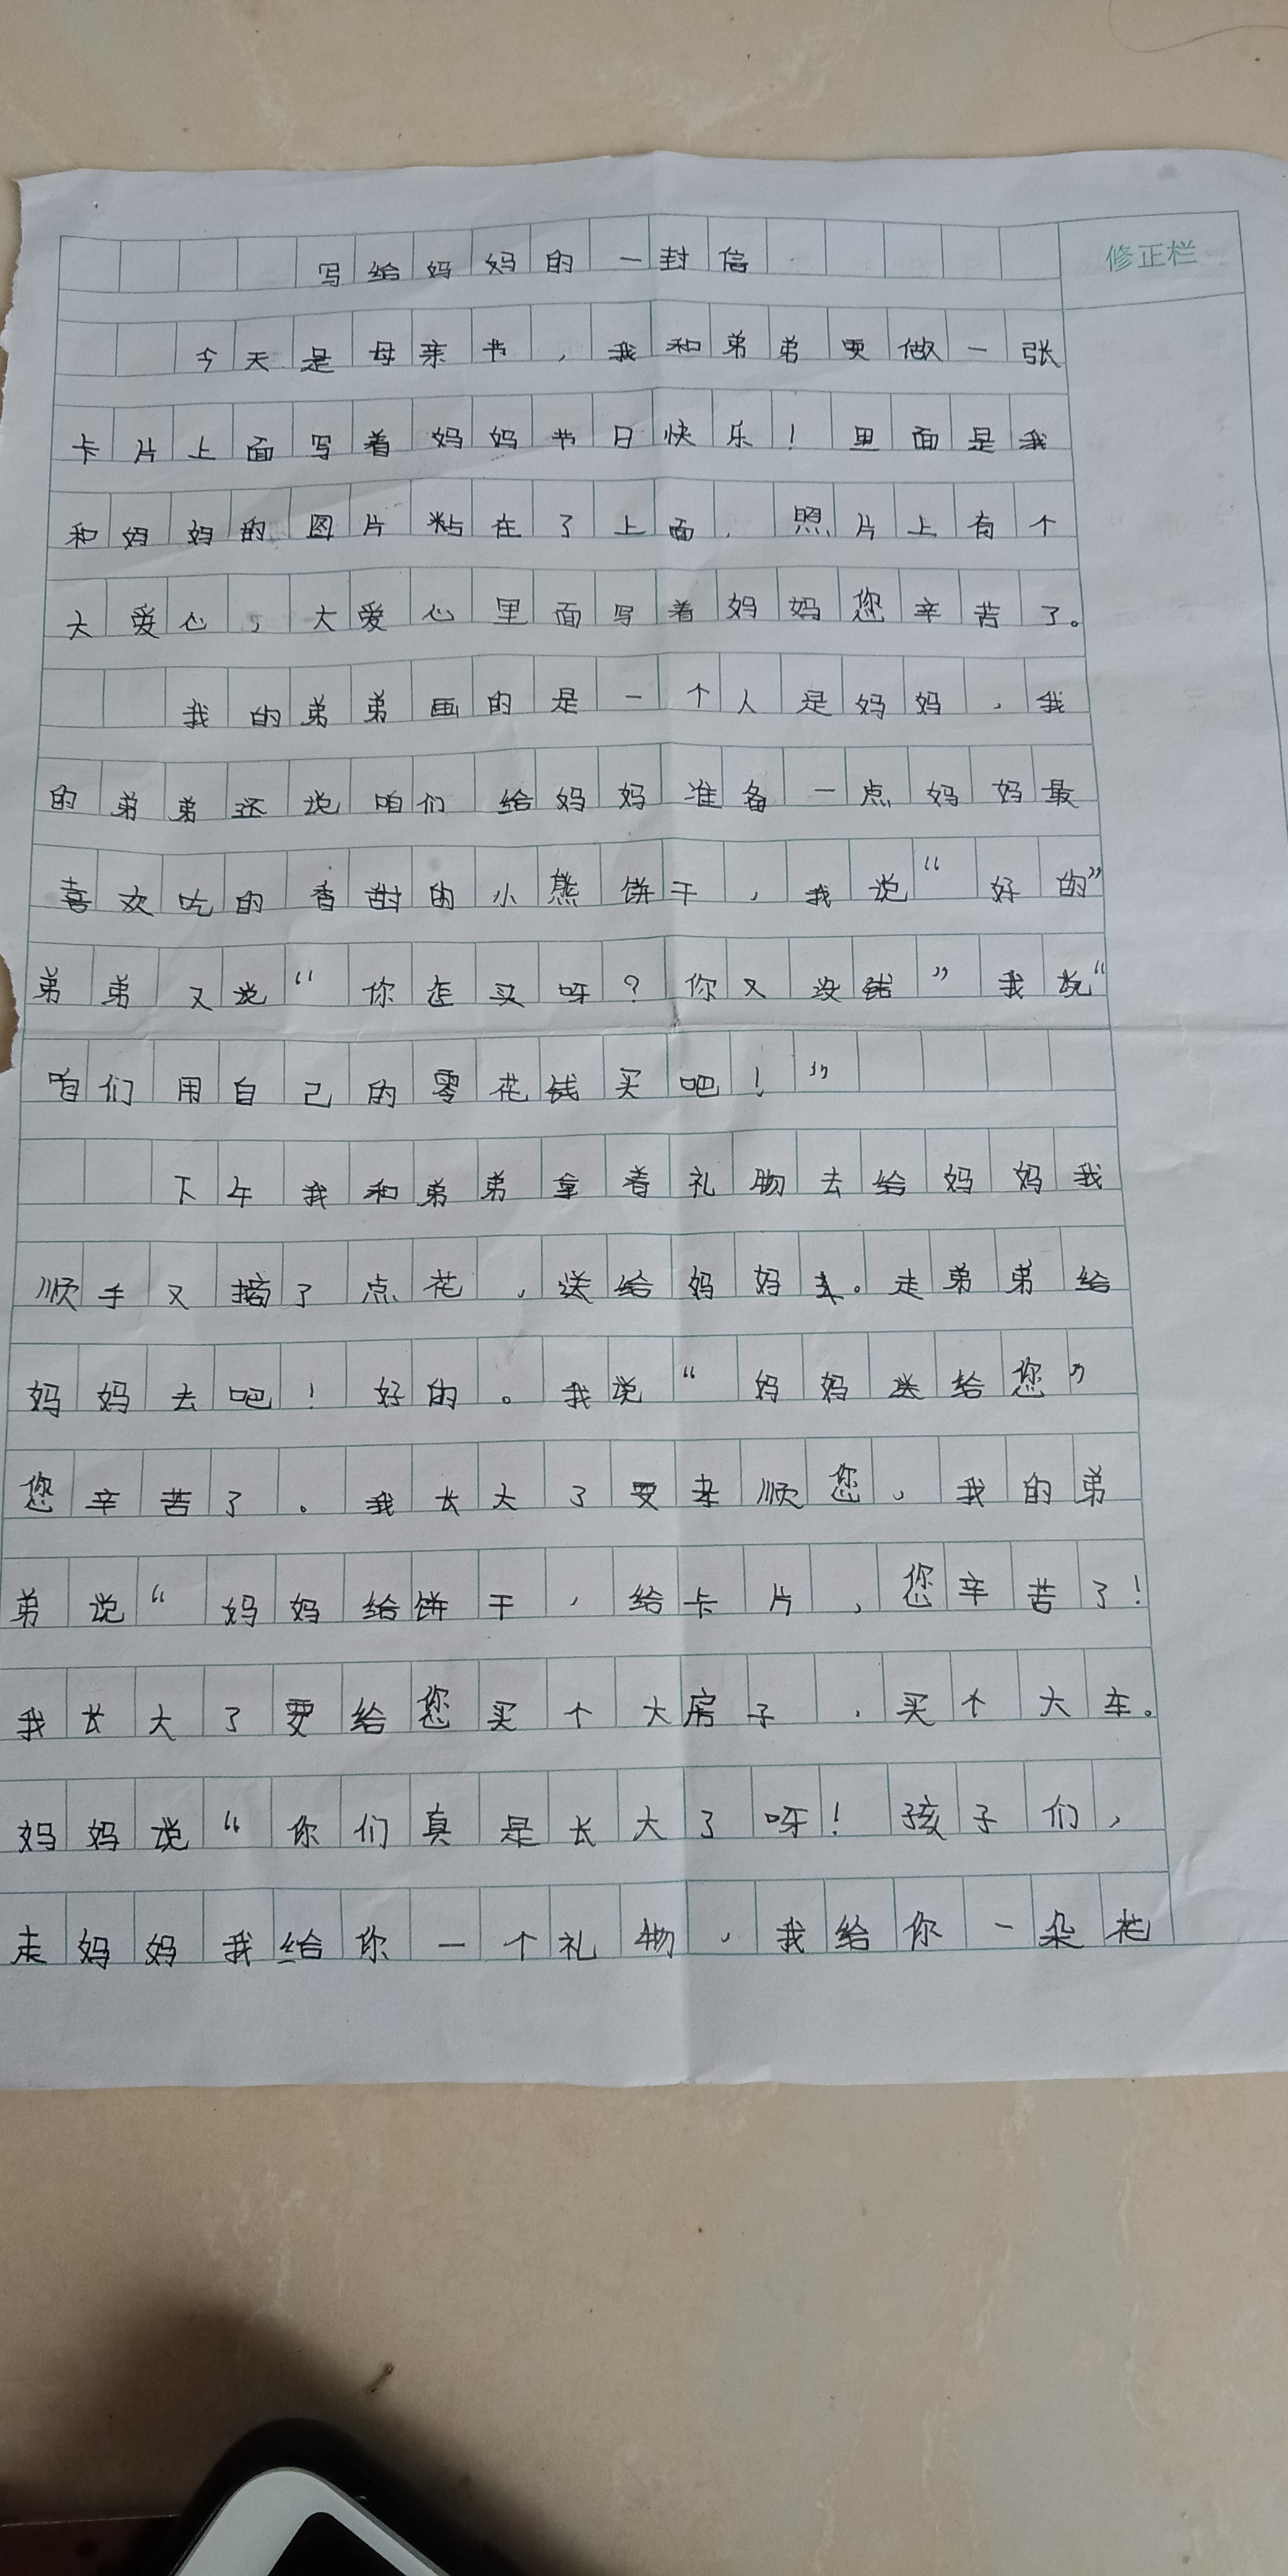 写给妈妈的一封信
修正栏
今天是母亲节，我和弟弟要做一张
卡片上面写着妈妈节日快乐！里面是我
和妈妈的图片粘在了上面，照片上有个
大爱心，大爱心里面写着妈妈您辛苦了。
我的弟弟画的是一个人是妈妈，我
的弟弟还说咱们给妈妈准备一点妈妈最
喜欢吃的香甜的小熊饼干，我说“好的”
弟弟又说“你怎买呀？你又没钱”我说“
咱们用自己的零花钱买吧！”
下午我和弟弟拿着礼物去给妈妈我
顺手又摘了点花，送给妈妈。走弟弟给
妈妈去吧！好的。我说“妈妈送给您”
您辛苦了。我长大了要孝顺您，我的弟
弟说“妈妈给饼干，给卡片，您辛苦了！
我长大了要给您买个大房子，买个大车。
妈妈说“你们真是长大了呀！孩子们，
走妈妈我给你一个礼物，我给你一朵花